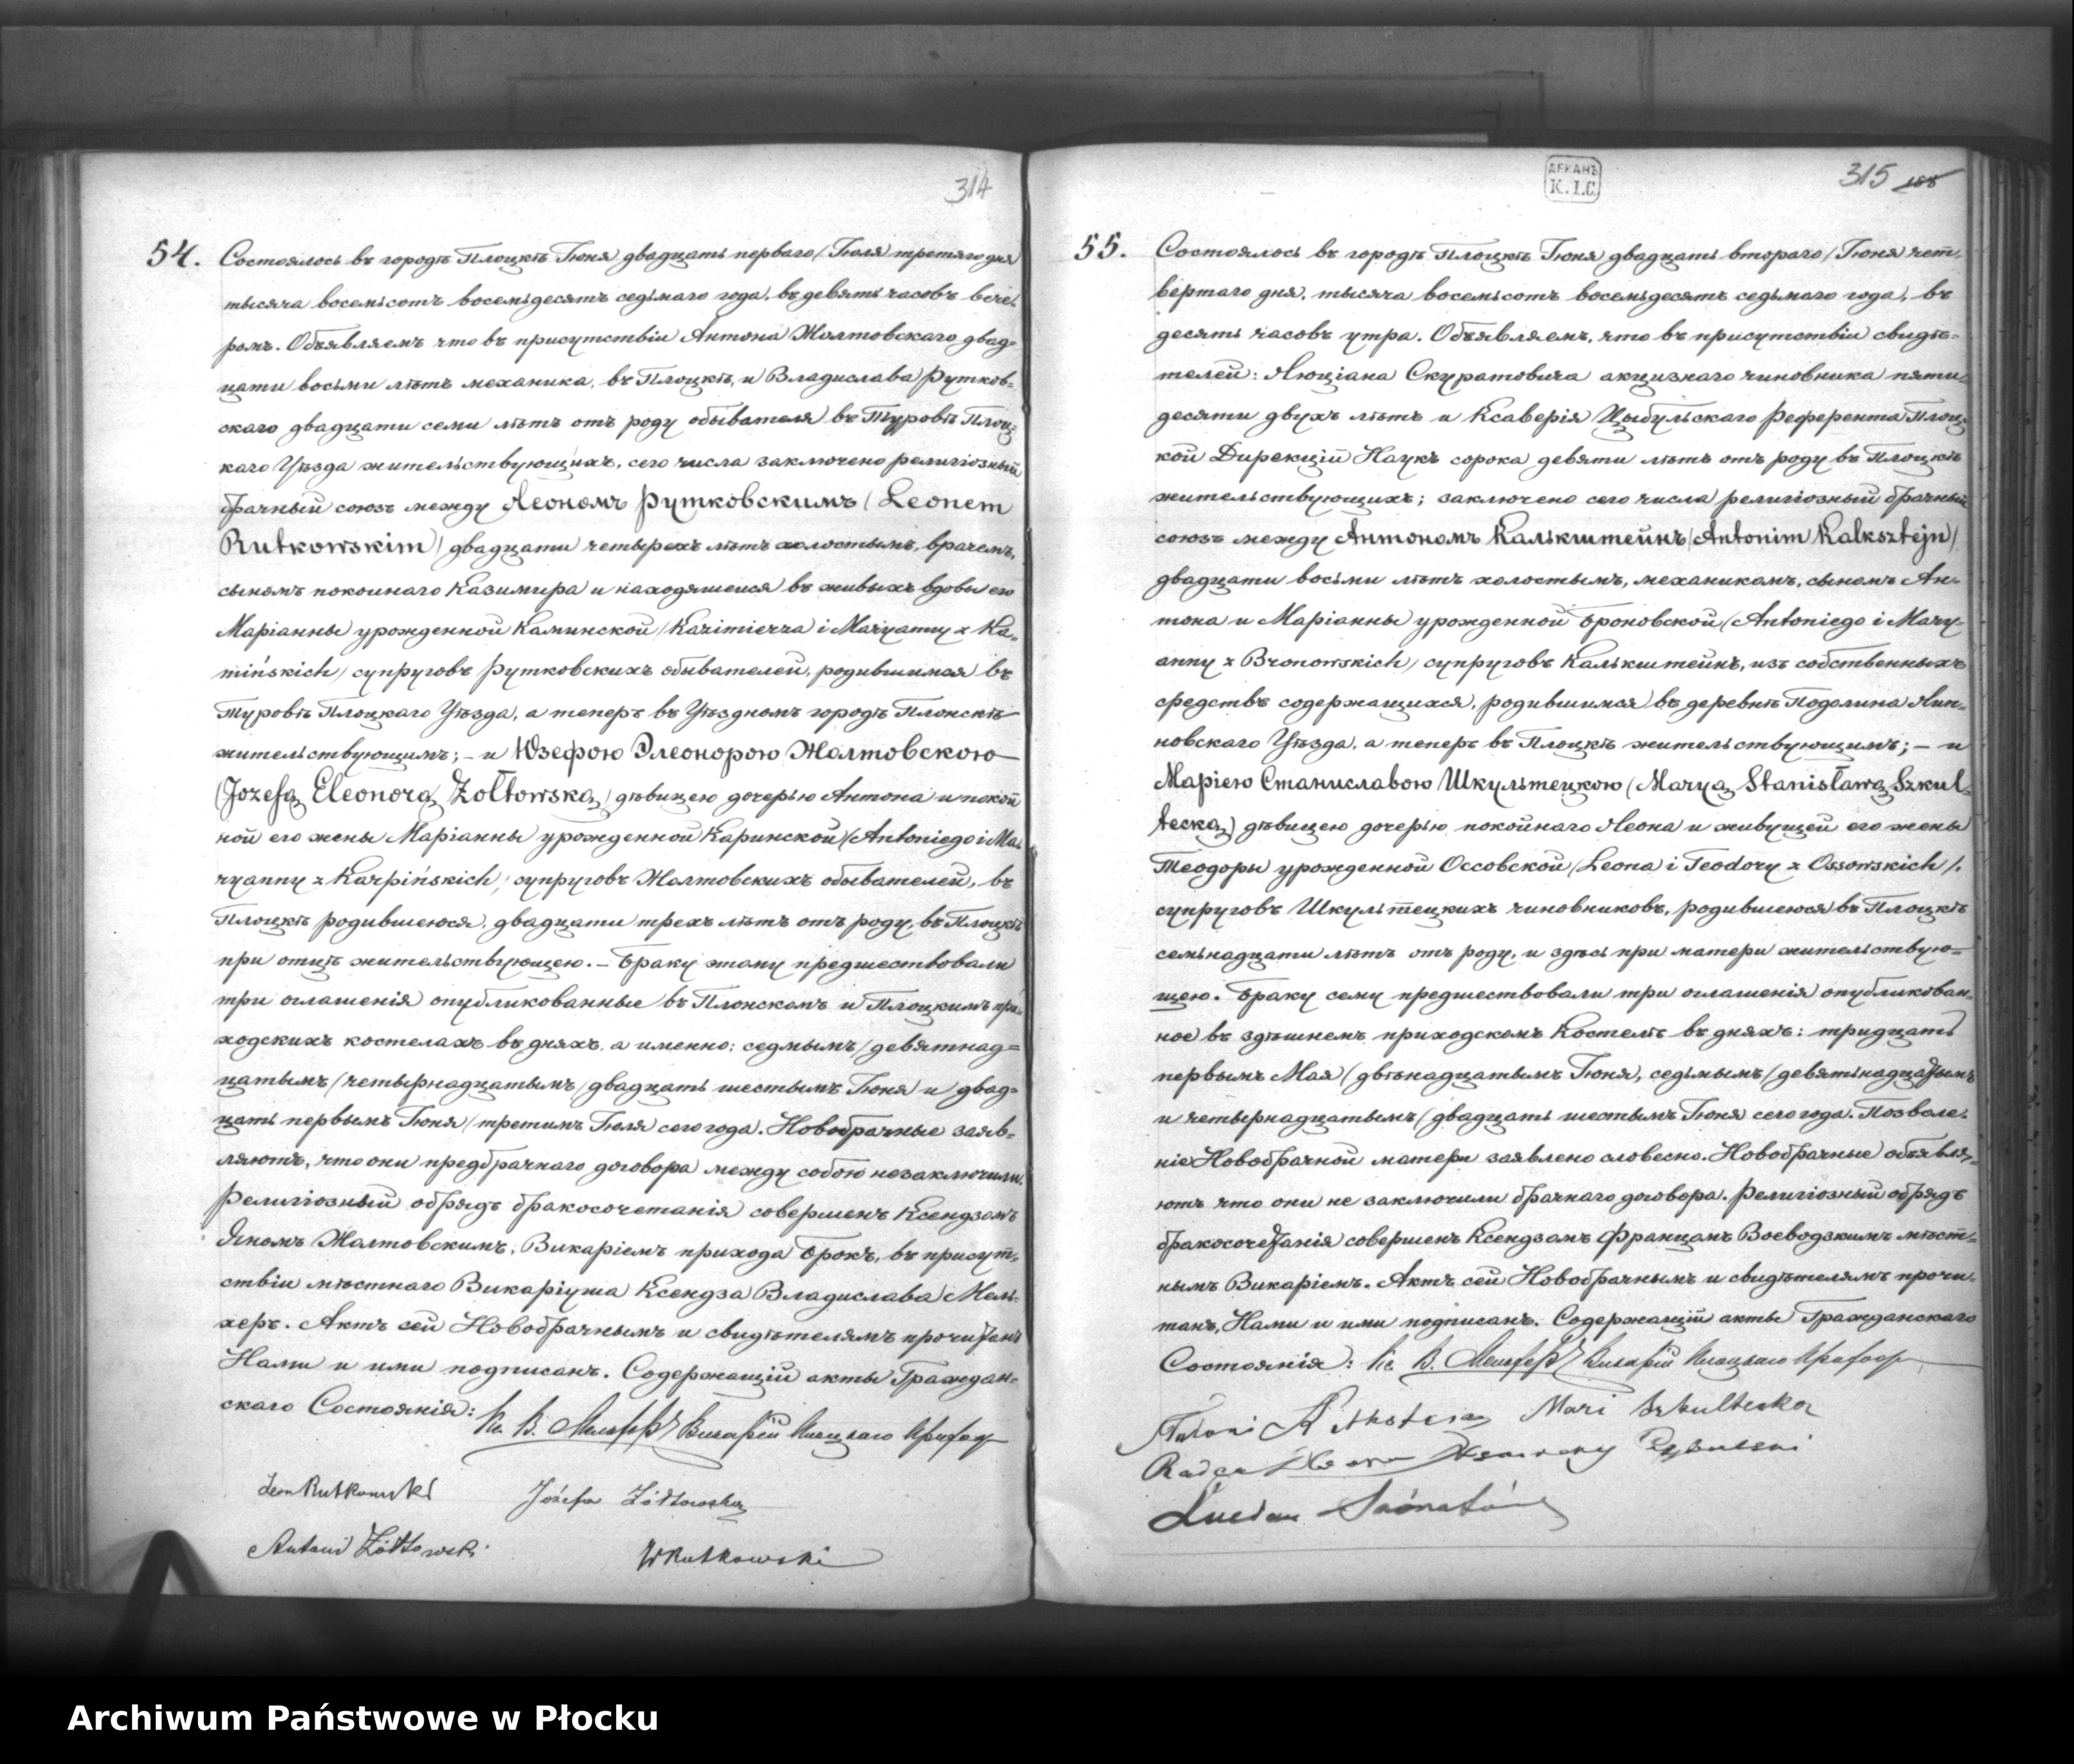 314
54. Состоялось въ городѣ Плоцкѣ Іюня двадцать перваго/Іюля третяго дня
тысяча восемьсотъ восемьдесятъ седьмаго года, въ девять часовъ вече-
ромъ. Объявляемъ что въ присутствіи Антона Жолтовскаго двад-
цати восьми лѣтъ механика, въ Плоцкѣ, и Владислава Рутков-
скаго двадцати семи лѣтъ отъ роду обывателя въ Туровѣ Плоц-
каго Уѣзда жительствующихъ, сего числа заключено религіозный
брачный союзъ между Леономъ Рутковскимъ (Leonem
Rutkowskim) двадцати четырехъ лѣтъ холостымъ, врачемъ,
сыномъ покоинаго Казимира и находящейся въ живыхъ вдовы его
Маріанны урожденной Каминской (Kazimierza i Maryanny z Ka-
mińskich) супруговъ Рутковскихъ обывателей, родившимся въ
Туровѣ Плоцкаго Уѣзда, а теперъ въ Уѣздномъ городѣ Плонскѣ
жительствующимъ; – и Юзефою Элеонорою Жолтовскою
(Jozefą Eleonorą Żołtowską) дѣвицею дочерью Антона и покой
ной его жены Маріанны урожденной Каринской (Antoniego i Ma-
ryanny z Karpińskich) супруговъ Жолтовскихъ обывателей, въ
Плоцкѣ родившеюся, двадцати трехъ лѣтъ отъ роду, въ Плоцкѣ
при отцѣ жительствующею. – Браку этому предшествовали
три оглашенія опубликованные въ Плонскомъ и Плоцкимъ при-
ходскихъ костелахъ въ дняхъ, а именно: седмымъ/девятнад-
цатымъ/четырнадцатымъ/двадцать шестымъ Іюня и двад-
цать первымъ Іюня/третимъ Іюля сего года. Новобрачные заяв-
ляютъ, что они предбрачнаго договора между собою незаключили.
Религіозный обрядъ бракосочетанія совершенъ Ксендзомъ
Яномъ Жолтовскимъ, Викаріемъ прихода Брокъ, въ присут-
ствіи мѣстнаго Викаріуша Ксендза Владислава Мель-
херъ. Актъ сей Новобрачнымъ и свидѣтелямъ прочитанъ
Нами и ими подписанъ. Содержащій акты Граждан-
скаго Состоянія: Кс. В. Мельхеръ Викарій Плоцкаго Прихода
Leon Rutkowski Józefa Żółtowska
Antoni Żółtowski WRutkowski
ДЕКАНЪ
К. І. С.
315 188
55. Состоялось въ городѣ Плоцкѣ Іюня двадцать втораго/Іюня чет-
вертаго дня, тысяча восемьсотъ восемьдесятъ седьмаго года, въ
десять часовъ утра. Объявляемъ, что въ присутствіи свидѣ-
телей: Люціана Скуратовича акцизнаго чиновника пяти-
десяти двухъ лѣтъ и Ксаверія Цыбульскаго Референта Плоц-
кой Дирекціи Наукъ сорока девяти лѣтъ отъ роду въ Плоцкѣ
жительствующихъ; заключено сего числа религіозный брачный
союзъ между Антономъ Калькштейнъ (Antonim Kalksztejn)
двадцати восьми лѣтъ холостымъ, механикомъ, сыномъ Ан-
тона и Маріанны урожденной Броновской (Antoniego i Mary-
anny z Bronowskich) супруговъ Калькштейнъ, изъ собственныхъ
средствъ содержащихся, родившимся въ деревнѣ Подолина Лип-
новскаго Уѣзда, а теперъ въ Плоцкѣ жительствующимъ; – и
Маріею Станиславою Шкультецкою (Maryą Stanisławą Szkul-
tecką) дѣвицею дочерью покойнаго Леона и живущей его жены
Теодоры урожденной Оссовской (Leona i Teodory z Ossowskich).
супруговъ Шкультецкихъ чиновниковъ, родившеюся въ Плоцкѣ
семьнадцати лѣтъ отъ роду, и здѣсь при матери жительствую-
щею. Браку сему предшествовали три оглашенія опубликован-
ное въ здѣшнемъ приходскомъ Костелѣ въ дняхъ: тридцать
первымъ Мая (двѣнадцатымъ Іюня, седьмымъ/девятьнадцатымъ
и четырнадцатымъ/двадцать шестымъ Іюня сего года. Позволе-
ніе Новобрачной матери заявлено словесно. Новобрачные объявля-
ютъ что они не заключили брачнаго договора. Религіозный обрядъ
бракосочетанія совершенъ Ксендзомъ Францомъ Воеводзкимъ мѣст-
нымъ Викаріемъ. Актъ сей Новобрачнымъ и свидѣтелямъ прочи-
танъ, Нами и ими подписанъ. Содержащій акты Гражданскаго
Состоянія: Кс. В. Мельхеръ Викарій Плоцкаго Прихода
Antoni Mari Szkultecka
Cybulski
Lucian
Archiwum Państwowe w Płocku